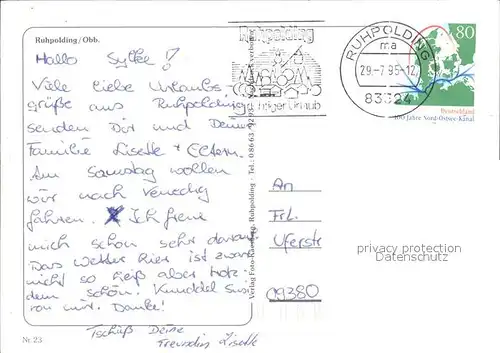 Ruhpolding/Obb.
Hallo Sylke!
Viele liebe Urlaubs
grüße aus Ruhpolding
senden Dir und Deiner
Familie Lisette + Eltern.
Am Samstag wollen
wir nach Venedig
fahren. Ich freue
mich schon sehr darauf.
Das Wetter hier ist zwar
nicht so heiß aber trotz-
dem schön. Susi
von mir. Danke!
Tschüß Deine
Freundin Lisette
Nr. 23
Verlag Foto- Ruhpolding · Tel.: 0 86 63 /
Ruhpolding
Urlaub
RUHPOLDING
ma
29.-7.95-12
83324
80
Deutschland
100 Jahre Nord-Ostsee-Kanal
An
Frl.
Uferstr
09380
privacy protection
Datenschutz